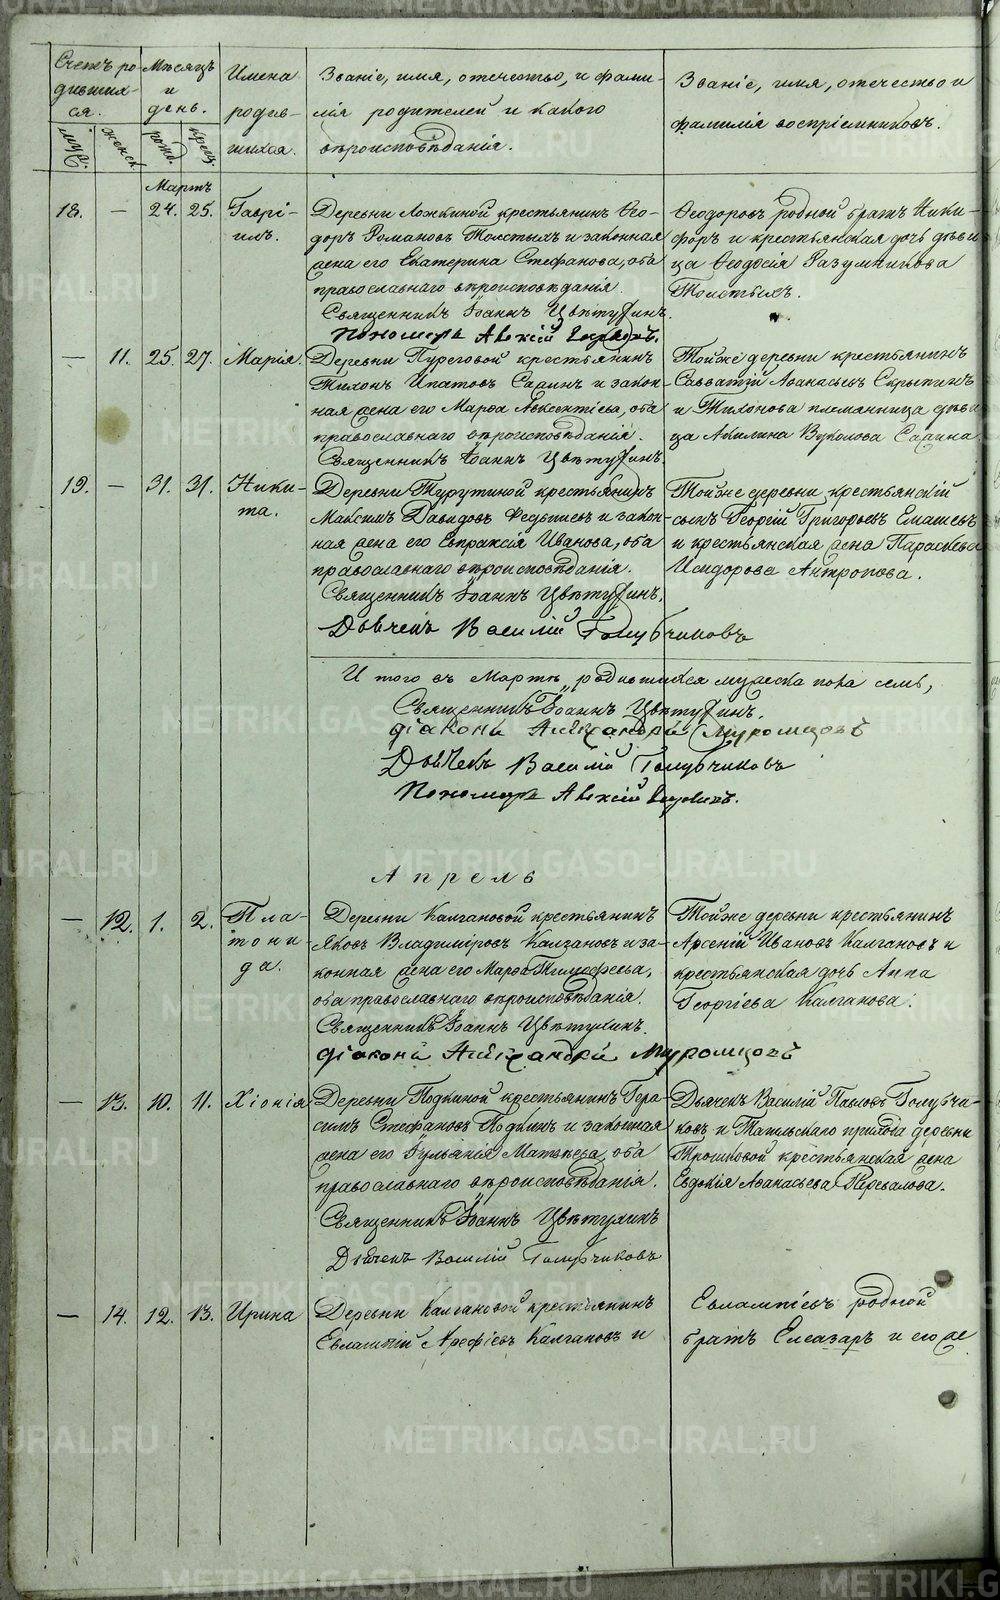 Счетъ ро-
дивших-
ся.
Мѣсяцъ
и
день.
Имена
родив-
шихся.
Званіе, имя, отечество, и фами-
лія родителей и какого
вѣроисповѣданія.
Званіе, имя, отечество и
фамилія воспріемниковъ.
муж.
женск.
рожд.
крещ.
Мартъ
18. — 24. 25. Гаврі-
илъ.
Деревни Ложкиной крестьянинъ Ѳео-
доръ Романовъ Толстыхъ и законная
жена его Екатерина Стефанова, оба
православнаго вѣроисповѣданія.
Священникъ Іоаннъ Цвѣтухинъ.
Пономарь Алексій
Ѳеодоровъ родной братъ Ники-
форъ и крестьянская дочь дѣви-
ца Ѳеодосія Разумникова
Толстыхъ.
— 11. 25. 27. Марія.
Деревни Пуреговой крестьянинъ
Тихонъ Ипатовъ Саринъ и закон-
ная жена его Марѳа Авксентіева, оба
православнаго вѣроисповѣданія.
Священникъ Іоаннъ Цвѣтухинъ.
Тойже деревни крестьянинъ
Савватій Аѳанасьевъ Скрыпинъ
и Тихонова племянница дѣви-
ца Акилина Вуколова Сарина
19. — 31. 31. Ники-
та.
Деревни Турутиной крестьянинъ
Максимъ Давидовъ и закон-
ная жена его Евпраксія Иванова, оба
православнаго вѣроисповѣданія.
Священникъ Іоаннъ Цвѣтухинъ.
Дьячекъ Василій Голубчиковъ
Тойже деревни крестьянскій
сынъ Георгій Григорьевъ Емашевъ
и крестьянская жена Параскева
Исидорова Антропова.
И того въ Мартѣ родившихся мужеска пола семь,
Священникъ Іоаннъ Цвѣтухинъ.
Діаконъ Александръ Муромцовъ
Дьячекъ Василій Голубчиковъ
Пономарь Алексій
Апрель
— 12. 1. 2. Пла-
тони-
да.
Деревни Калгановой крестьянинъ
Яковъ Владиміровъ Калгановъ и за-
конная жена его Марѳа Тимофеева,
оба православнаго вѣроисповѣданія.
Священникъ Іоаннъ Цвѣтухинъ.
Діаконъ Александръ Муромцовъ
Тойже деревни крестьянинъ
Арсеній Ивановъ Калгановъ и
крестьянская дочь Анна
Георгіева Калганова.
— 13. 10. 11. Хіонія
Деревни Подкиной крестьянинъ Гера-
симъ Стефановъ Подкинъ и законная
жена его Іуліанія Матвѣева, оба
православнаго вѣроисповѣданія.
Священникъ Іоаннъ Цвѣтухинъ
Дьячекъ Василій Голубчиковъ
Дьячекъ Василій Павловъ Голубчи-
ковъ и Тагильскаго прихода деревни
Трошковой крестьянская жена
Евдокія Аѳанасьева Перевалова.
— 14. 12. 13. Ирина
Деревни Калгановой крестьянинъ
Евлампій Арефіевъ Калгановъ и
Евлампіевъ родной
братъ Елеазаръ и его же
METRIKI.GASO-URAL.RU